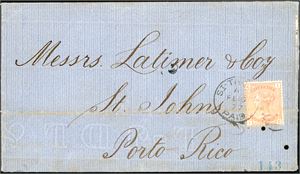 Messrs. Latimer & Coy
St. Johns
Porto Rico
ST. T
PAID
113